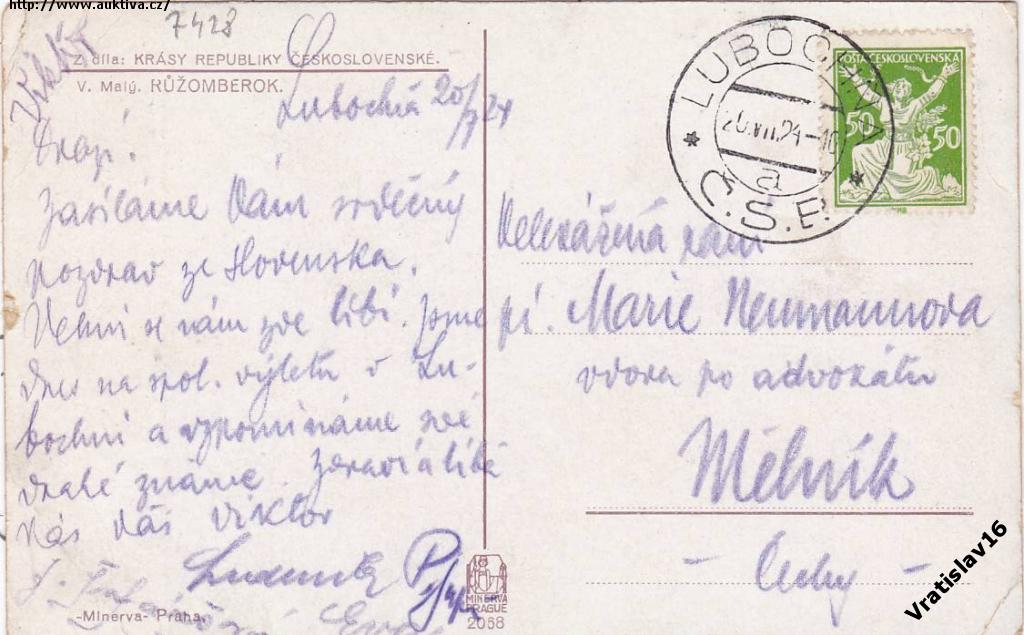 http://www.auktiva.cz/
7428
Z díla: KRÁSY REPUBLIKY ČESKOSLOVENSKÉ.
V. Malý. RŮŽOMBEROK.
Lubochňa 20/7 24
Drazí!
Zasíláme Vám srdečný
pozdrav ze Slovenska.
Velmi se nám zde líbí. Jsme
dnes na spol. výletu v Lu-
bochni a vzpomínáme své
drahé známé. Zdraví a líbá
Vás váš Viktor
-Minerva- Praha.
MINERVA
PRAGUE
2058
LUBOCHŇA
20.VII.24-10
a
Č.S.P.
POŠTA ČESKOSLOVENSKÁ
50 50
Velevážená
pí. Marie Neumannova
vdova po advokátu
Mělník
- Čechy -
Vratislav16